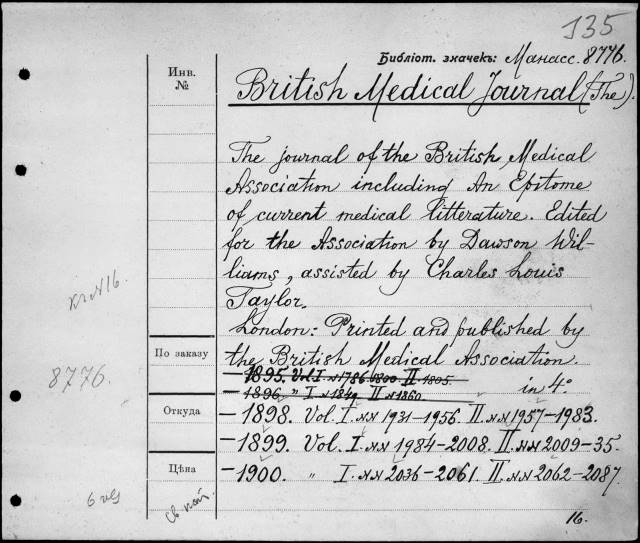 135
Библіот. значекъ: Манасс. 8776.
Инв.
№
British Medical Journal (The).
The journal of the British Medical
Association including An Epitome
of current medical litterature. Edited
for the Association by Dawson Wil-
liams, assisted by Charles Louis
Taylor.
London: Printed and published by
the British Medical Association.
in 4°
— 1895. Vol. I. N 1786-1800 II 1805.
— 1896. " I N 1849 II N 1860.
— 1898. Vol. I. NN 1931–1956. II. NN 1957–1983.
— 1899. Vol. I. NN 1984–2008. II. NN 2009–35.
— 1900. " I. NN 2036–2061. II. NN 2062–2087.
16.
N 16.
По заказу
8776.
Откуда
Цѣна
6